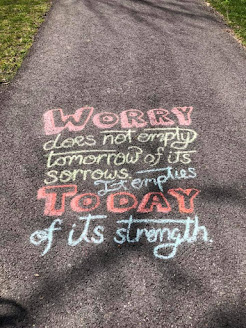 WORRY
does not empty
tomorrow of its
sorrows. It empties
TODAY
of its strength.